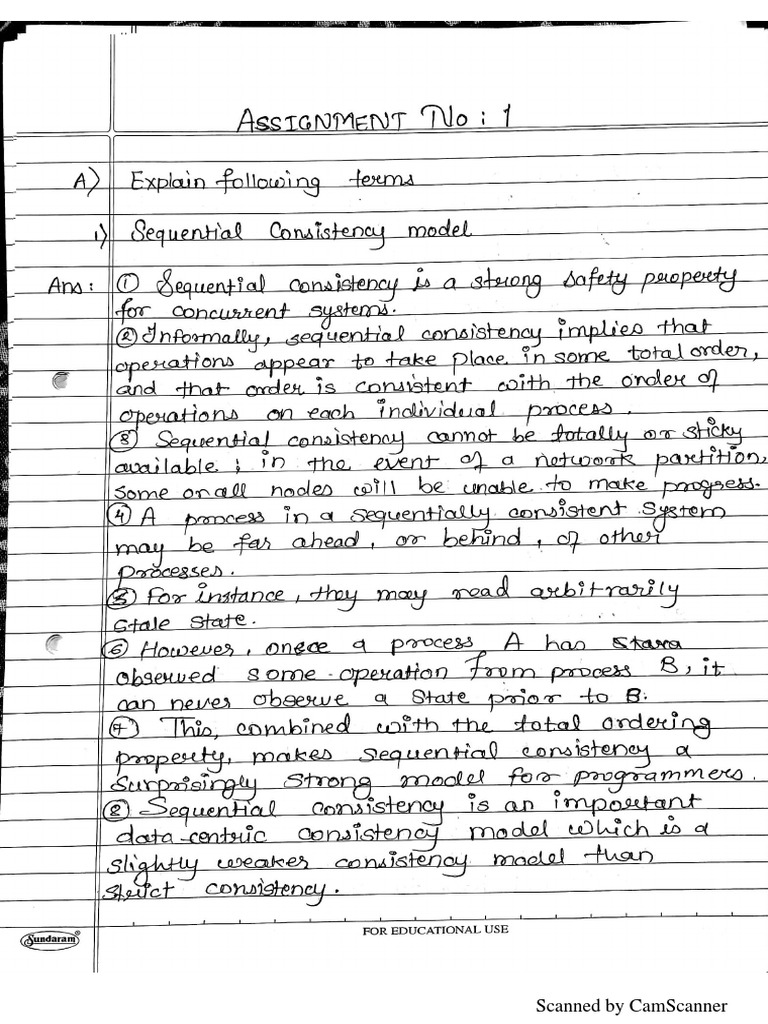 ASSIGNMENT No : 1
A) Explain following terms
1) Sequential Consistency model
Ans : ① Sequential consistency is a strong safety property
for concurrent systems.
② Informally, sequential consistency implies that
operations appear to take place in some total order,
and that order is consistent with the order of
operations on each individual process.
③ Sequential consistency cannot be totally or sticky
available ; in the event of a network partition,
some or all nodes will be unable to make progress.
④ A process in a sequentially consistent system
may be far ahead, or behind, of other
processes.
⑤ For instance, they may read arbitrarily
stale state.
⑥ However, once a process A has
observed some operation from process B, it
can never observe a state prior to B.
⑦ This, combined with the total ordering
property, makes sequential consistency a
surprisingly strong model for programmers.
⑧ Sequential consistency is an important
data-centric consistency model which is a
slightly weaker consistency model than
strict consistency.
Sundaram
FOR EDUCATIONAL USE
Scanned by CamScanner